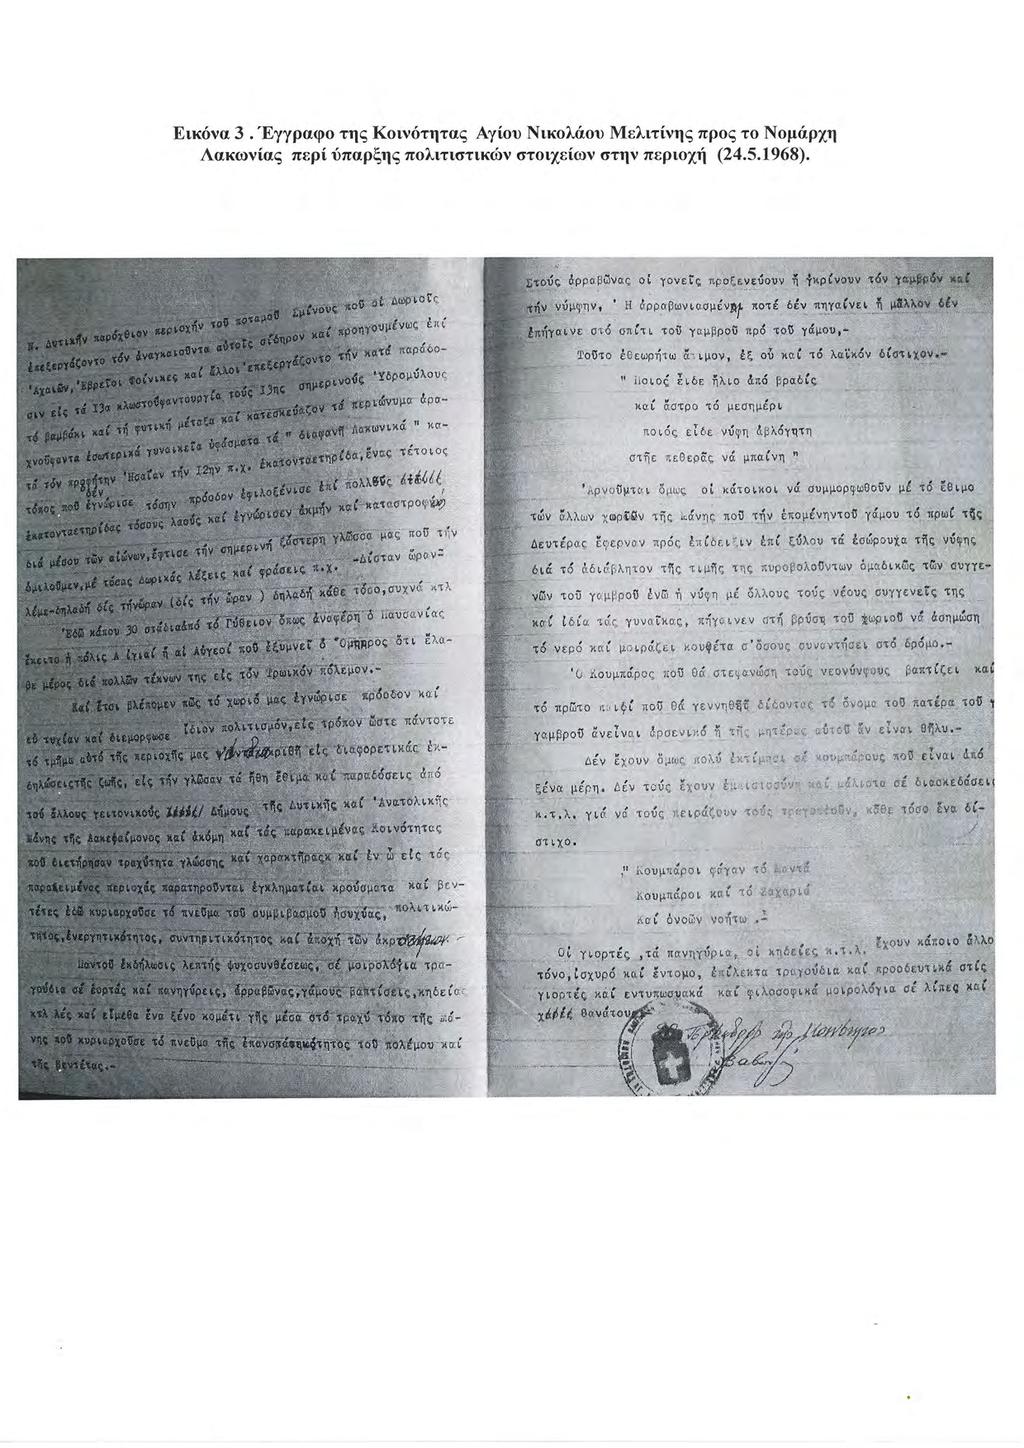 Εικόνα 3 . Έγγραφο της Κοινότητας Αγίου Νικολάου Μελιτίνης προς το Νομάρχη
Λακωνίας περί ύπαρξης πολιτιστικών στοιχείων στην περιοχή (24.5.1968).
Δυτικήν παρόχθιον περιοχήν τοῦ ποταμοῦ Σμίνους ποῦ οἱ Δωριεῖς
ἐπεξεργάζοντο τόν ἀναγκαιοῦντα αὐτοῖς σίδηρον καί προηγουμένως ἐπί
Ἀχαιῶν, Ἑβρεῖοι Φοίνικες καί ἄλλοι ἐπεξεργάζοντο τήν κατά παράδο-
σιν εἰς τά 13α κλωστοϋφαντουργία τούς 13ης σημερινούς Ὑδρομύλους
τό βαμβάκι καί τή φυτική μέταξα καί κατεσκεύαζον τά περιώνυμα ἀρα-
χνοΰφαντα ἐσωτερικά γυναικεῖα ὑφάσματα τά " διαφανῆ Λακωνικά " κα-
τά τόν προφήτην Ἠσαΐαν τήν 12ην π.χ. ἑκατονταετηρίδα, ἕνας τέτοιος
τόπος ποῦ ἐγνώρισε τόσην πρόοδον ἐφιλοξένισε ἐπί πολλούς
ἑκατονταετηρίδας τόσους λαούς καί ἐγνώρισεν ἀκμήν καί καταστροφήν
διά μέσου τῶν αἰώνων, ἔφτισε τήν σημερινή ξάστερη γλῶσσα μας ποῦ τήν
ὁμιλοῦμεν, μέ τόσας δωρικάς λέξεις καί φράσεις π.χ. -Δίσταν ὥραν-
λέμε-δηλαδή δίς τήνώραν (δίς τήν ὥραν ) δηλαδή κάθε τόσο, συχνά κτλ
Ἐδῶ κάπου 30 στάδιαἀπό τό Γύθειον ὅπως ἀναφέρη ὁ Παυσανίας
ἔκειτο ἡ πόλις Α ἰγιαί ἤ αἱ Αὐγεοί ποῦ ἐξυμνεῖ ὁ Ὅμηρος ὅτι ἔλα-
βε μέρος διά πολλῶν τέκνων της εἰς τόν Τρωικόν πόλεμον.-
Καί ἔτσι βλέπομεν πῶς τό χωριό μας ἐγνώρισε πρόοδον καί
εὐ τυχίαν καί διεμορφωσε ἴδιον πολιτισμόν, εἰς τρόπον ὥστε πάντοτε
τό τμῆμα αὐτό τῆς περιοχῆς μας εἰς διαφορετικάς ἐκ-
δηλώσειςτῆς ζωῆς, εἰς τήν γλῶσαν τά ἤθη ἔθιμα καί παραδόσεις ἀπό
τοῦ ἄλλους γειτονικούς Δήμους τῆς Δυτικῆς καί Ἀνατολικῆς
Μάνης τῆς Λακεδαίμονος καί ἀκόμη καί τάς παρακειμένας Κοινότητας
ποῦ διετήρησαν τραχύτητα γλώσσης καί χαρακτῆρας καί ἐν ὧ εἰς τάς
παρακειμένας περιοχάς παρατηροῦνται ἐγκληματίαι κρούσματα καί βεν-
τέτες ἐδῶ κυριαρχοῦσε τό πνεῦμα τοῦ συμβιβασμοῦ ἡσυχίας, πολιτικώ-
τητος, ἐνεργητικότητος, συντηριτικότητος καί ἀποχή τῶν
Παντοῦ ἐκδήλωσις λεπτῆς ψυχοσυνθέσεως, σέ μοιρολόγια τρα-
γούδια σέ ἑορτάς καί πανηγύρεις, ἀρραβῶνας, γάμους βαπτίσεις, κηδείας
κτλ λές καί εἴμεθα ἕνα ξένο κομάτι γῆς μέσα στό τραχύ τόπο τῆς Μά-
νης ποῦ κυριαρχοῦσε τό πνεῦμα τῆς τοῦ πολέμου καί
τῆς βεντέτας.-
Στούς ἀρραβῶνας οἱ γονεῖς προξενεύουν ἤ ἐγκρίνουν τόν γαμβρόν καί
τήν νύμφην, Ἡ ἀρραβωνιασμένη ποτέ δέν πηγαίνει ἤ μᾶλλον δέν
ἐπήγαινε στό σπίτι τοῦ γαμβροῦ πρό τοῦ γάμου,-
Τοῦτο ἐθεωρήτω ἄτιμον, ἐξ οὗ καί τό λαϊκόν δίστιχον.-
" Ποιος εἶδε ἥλιο ἀπό βραδίς
καί ἄστρο τό μεσημέρι
ποιός εἶδε νύφη ἀβλόγητη
στῆς πεθερᾶς νά μπαίνη "
Ἀρνοῦμται ὅμως οἱ κάτοικοι νά συμμορφωθοῦν μέ τό ἔθιμο
τῶν ἄλλων χωριῶν τῆς Μάνης ποῦ τήν ἑπομένηντοῦ γάμου τό πρωί τῆς
Δευτέρας ἔφερναν πρός ἐπίδειξιν ἐπί ξύλου τά ἐσώρουχα τῆς νύφης
διά τό ἀδιάβλητον τῆς τιμῆς της πυροβολοῦντων ὁμαδικῶς τῶν συγγε-
νῶν τοῦ γαμβροῦ ἐνῶ ἡ νύφη μέ ὅλλους τούς νέους συγγενεῖς της
καί ἰδία τάς γυναῖκας, πήγαινεν στή βρύση τοῦ χωριοῦ νά ἀσημώση
τό νερό καί μοιράζει κουφέτα σ'ὅσους συναντήσει στό δρόμο.-
Ὁ Κουμπάρος ποῦ θά στεφανώση τούς νεονύνφους βαπτίζει και
τό πρῶτο παιδί ποῦ θά γεννηθῆ δίδοντας τό ὄνομα τοῦ πατέρα τοῦ
γαμβροῦ ἄνεῖναι ἀρσενικό ἤ τῆς μητέρας αὐτοῦ ἄν εἶναι θῆλυ.-
Δέν ἔχουν ὅμως πολύ ἐκτίμησι σέ κουμπάρους ποῦ εἶναι ἀπό
ξένα μέρη. Δέν τούς ἔχουν ἐμπιστοσύνη καί μάλιστα σέ διασκεδάσει
κ.τ.λ. γιά νά τούς πειράζουν τούς τραγουδοῦν, κάθε τόσο ἕνα δί-
στιχο.
" Κουμπάροι φάγαν τό
Κουμπάροι καί τό Ζαχαριά
Καί ὁνοῶν νοήτω .-
Οἱ γιορτές ,τά πανηγύρια, οἱ κηδείες κ.τ.λ. ἔχουν κάποιο ἄλλο
τόνο, ἰσχυρό καί ἔντομο, ἐπίλεκτα τραγούδια καί προοδευτικά στίς
γιορτές καί εντυπωσιακά καί φιλοσοφικά μοιρολόγια σέ λίπες καί
θανάτου
Πρόεδρος τῆς Κοινότητος